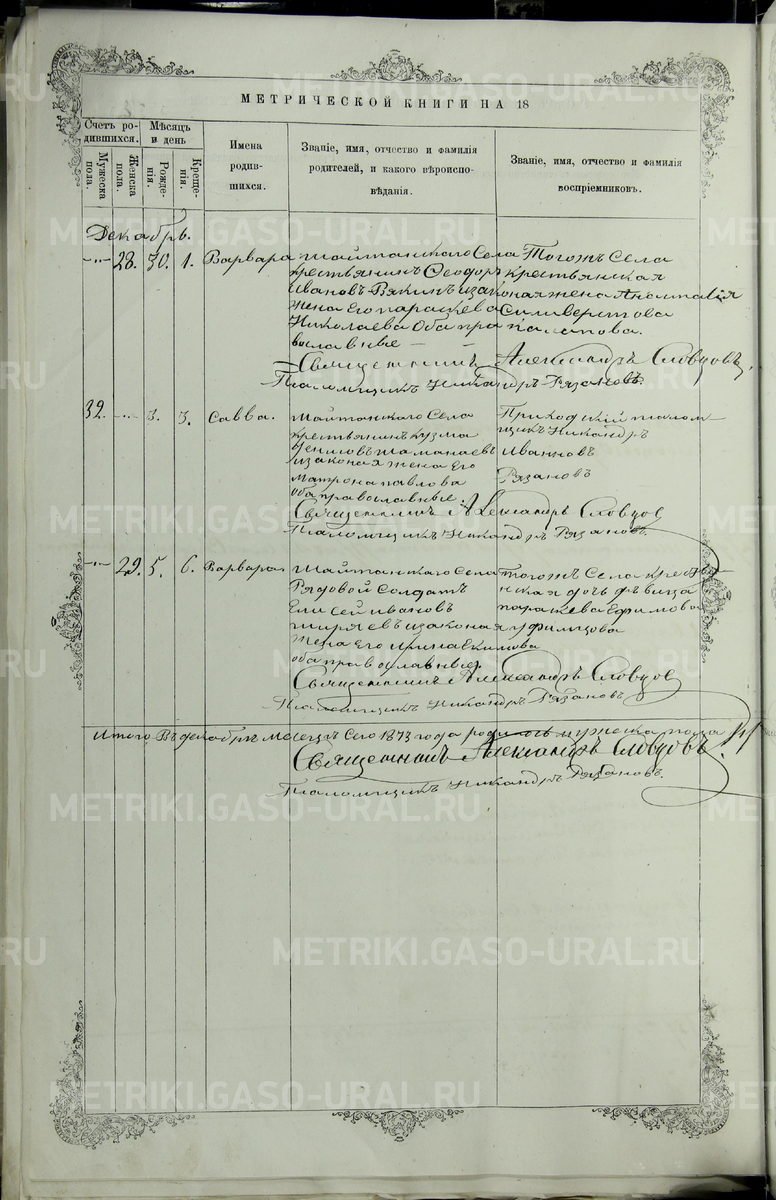 МЕТРИЧЕСКОЙ КНИГИ НА 18
Счетъ родившихся.
Мѣсяцъ и день
Мужеска пола.
Женска пола.
Рожденія.
Крещенія.
Имена родившихся.
Званіе, имя, отчество и фамилія родителей, и какого вѣроисповѣданія.
Званіе, имя, отчество и фамилія воспріемниковъ.
Декабрь.
28. 30. 1. Варвара
Шайтанскаго Села
крестьянинъ Ѳеодоръ
Ивановъ Вякинъ изаконая
жена Его парасκева
Николаева Оба пра
вославные
Тогожъ Села
крестьянская
жена Анастасія
Силиверстова
Священникъ Александръ Словцовъ
Псаломщикъ Никандръ Рязановъ.
32. 3. 3. Савва.
Шайтанскаго Села
крестьянинъ Кузма
изаконая жена Его
Матрона павлова
оба православные
Приходскій псалом
щикъ Никандръ
Ивановъ
Рязановъ
Священникъ Александръ Словцов
Псаломщикъ Никандръ Рязановъ.
29. 5. 6. Варвара
Шайтанскаго Села
Рядовой Солдатъ
Елисей Ивановъ
Ширяевъ изаконая
Жена Его Ирина Екимова
оба православные
Тогожъ Села крестья
нская дочь дѣвица
парасκева Ефимова
Уфимцова
Священникъ Александръ Словцов
Псаломщикъ Никандръ Рязановъ
Итого Въ декабрѣ месецѣ Сего 1873 года родилось мужеска пола
Священникъ Александръ Словцовъ.
Псаломщикъ Никандръ Рязановъ.
METRIKI.GASO-URAL.RU